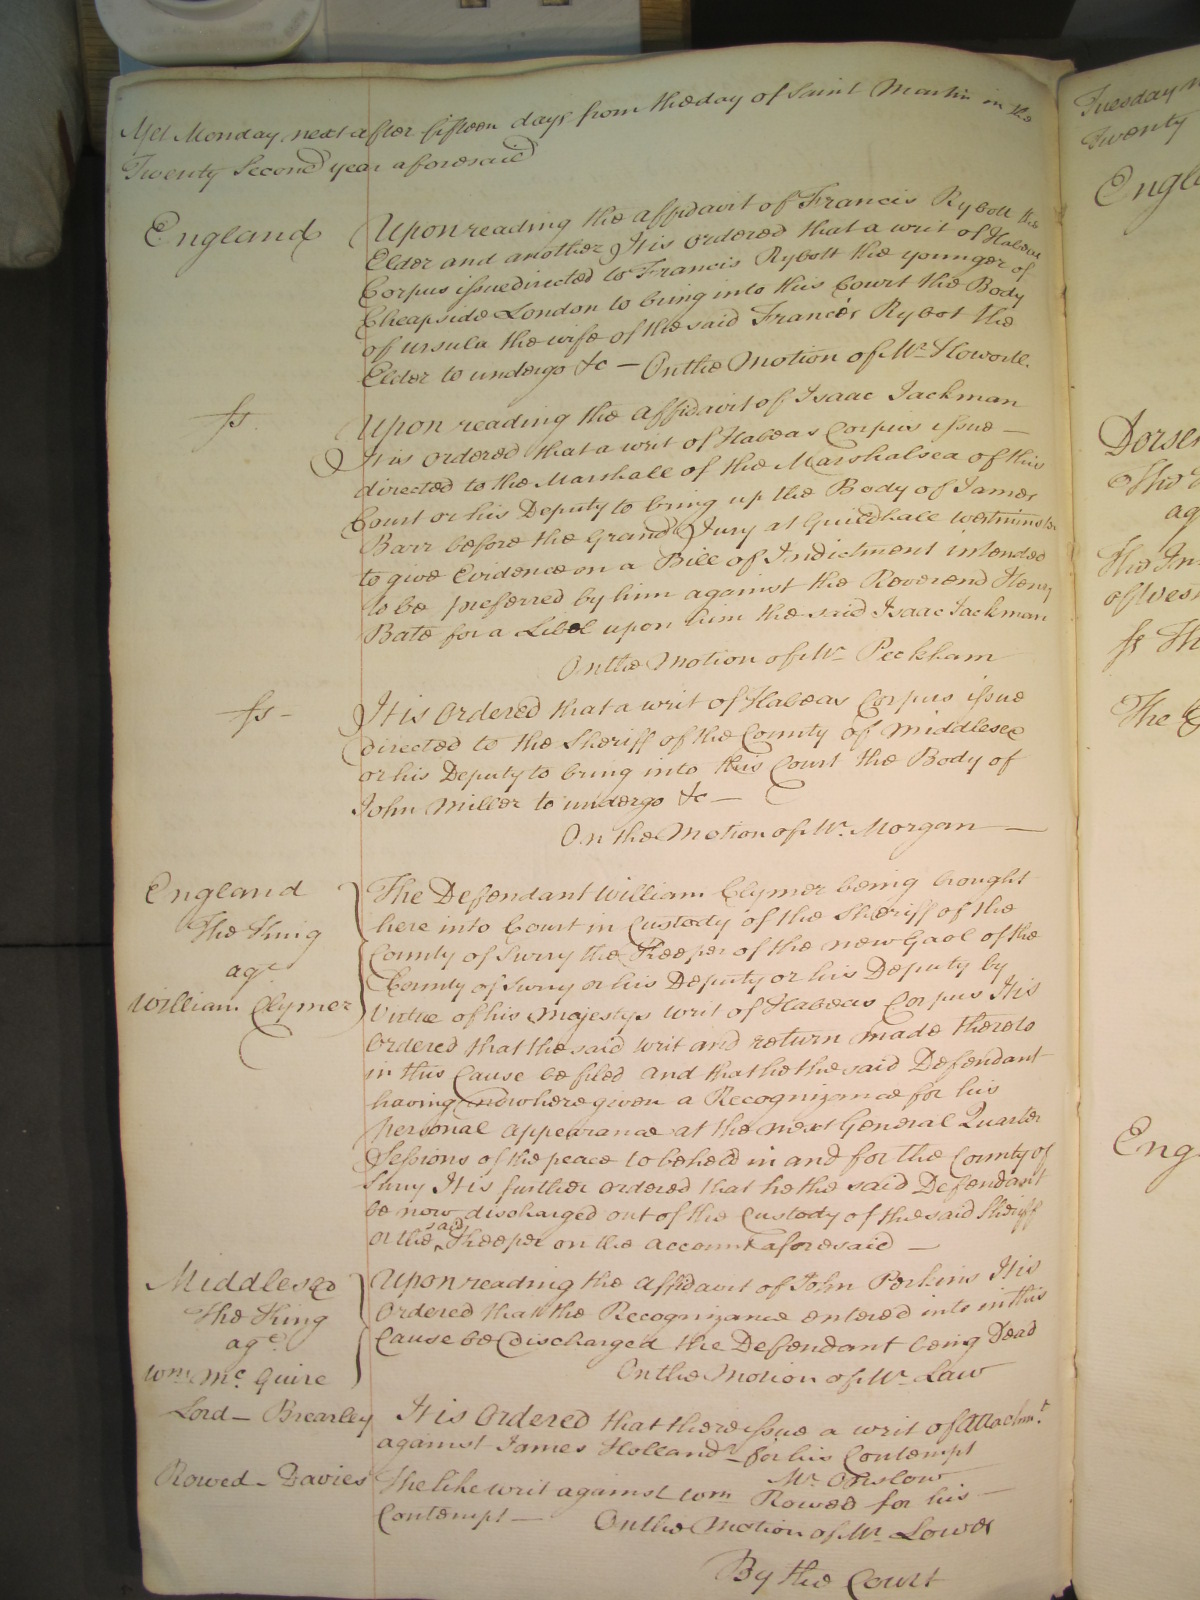 Yet Monday next after fifteen days from the day of Saint Martin in the
Twenty Second year aforesaid
England
Upon reading the affidavit of Francis Rybott the
Elder and another It is ordered that a writ of Habeas
Corpus issue directed to Francis Rybott the younger of
Cheapside London to bring into this Court the Body
of Ursula the wife of the said Francis Rybot the
Elder to undergo &c — On the Motion of Mr. Howorth.
ss.
Upon reading the Affidavit of Isaac Jackman
It is ordered that a writ of Habeas Corpus issue —
directed to the Marshall of the Marshalsea of this
Court or his Deputy to bring up the Body of James
Barr before the Grand Jury at Guildhall Westminster
to give Evidence on a Bill of Indictment intended
to be preferred by him against the Reverend Henry
Bate for a Libel upon him the said Isaac Jackman
On the Motion of Mr. Peckham
ss —
It is Ordered that a writ of Habeas Corpus issue
directed to the Sheriff of the County of Middlesex
or his Deputy to bring into this Court the Body of
John Miller to undergo &c —
On the Motion of Mr. Morgan —
England
The King
agt
William Clymer
The Defendant William Clymer being brought
here into Court in Custody of the Sheriff of the
County of Surry the Keeper of the new Gaol of the
County of Surry or his Deputy or his Deputy by
Virtue of his Majestys writ of Habeas Corpus It is
Ordered that the said writ and return made thereto
in this Cause be filed and that he the said Defendant
having endwhere given a Recognizance for his
personal appearance at the next General Quarter
Sessions of the peace to be held in and for the County of
Surry It is further ordered that he the said Defendant
be now discharged out of the Custody of the said Sheriff
or the said Keeper on the account aforesaid —
Middlesex
The King
agt.
Wm. Mc. Guire
Upon reading the affidavit of John Perkins It is
Ordered that the Recognizance entered into in this
Cause be discharged the Defendant being Dead
On the Motion of Mr. Law
Lord — Brearley
It is Ordered that there issue a writ of Attachmt.
against James Holland for his Contempt
Mr. Onslow
Rowed — Davies
The like writ against Wm Rowed for his —
Contempt — On the Motion of Mr. Lowes
By the Court
Tuesday
Twenty
Dorset
ag
The